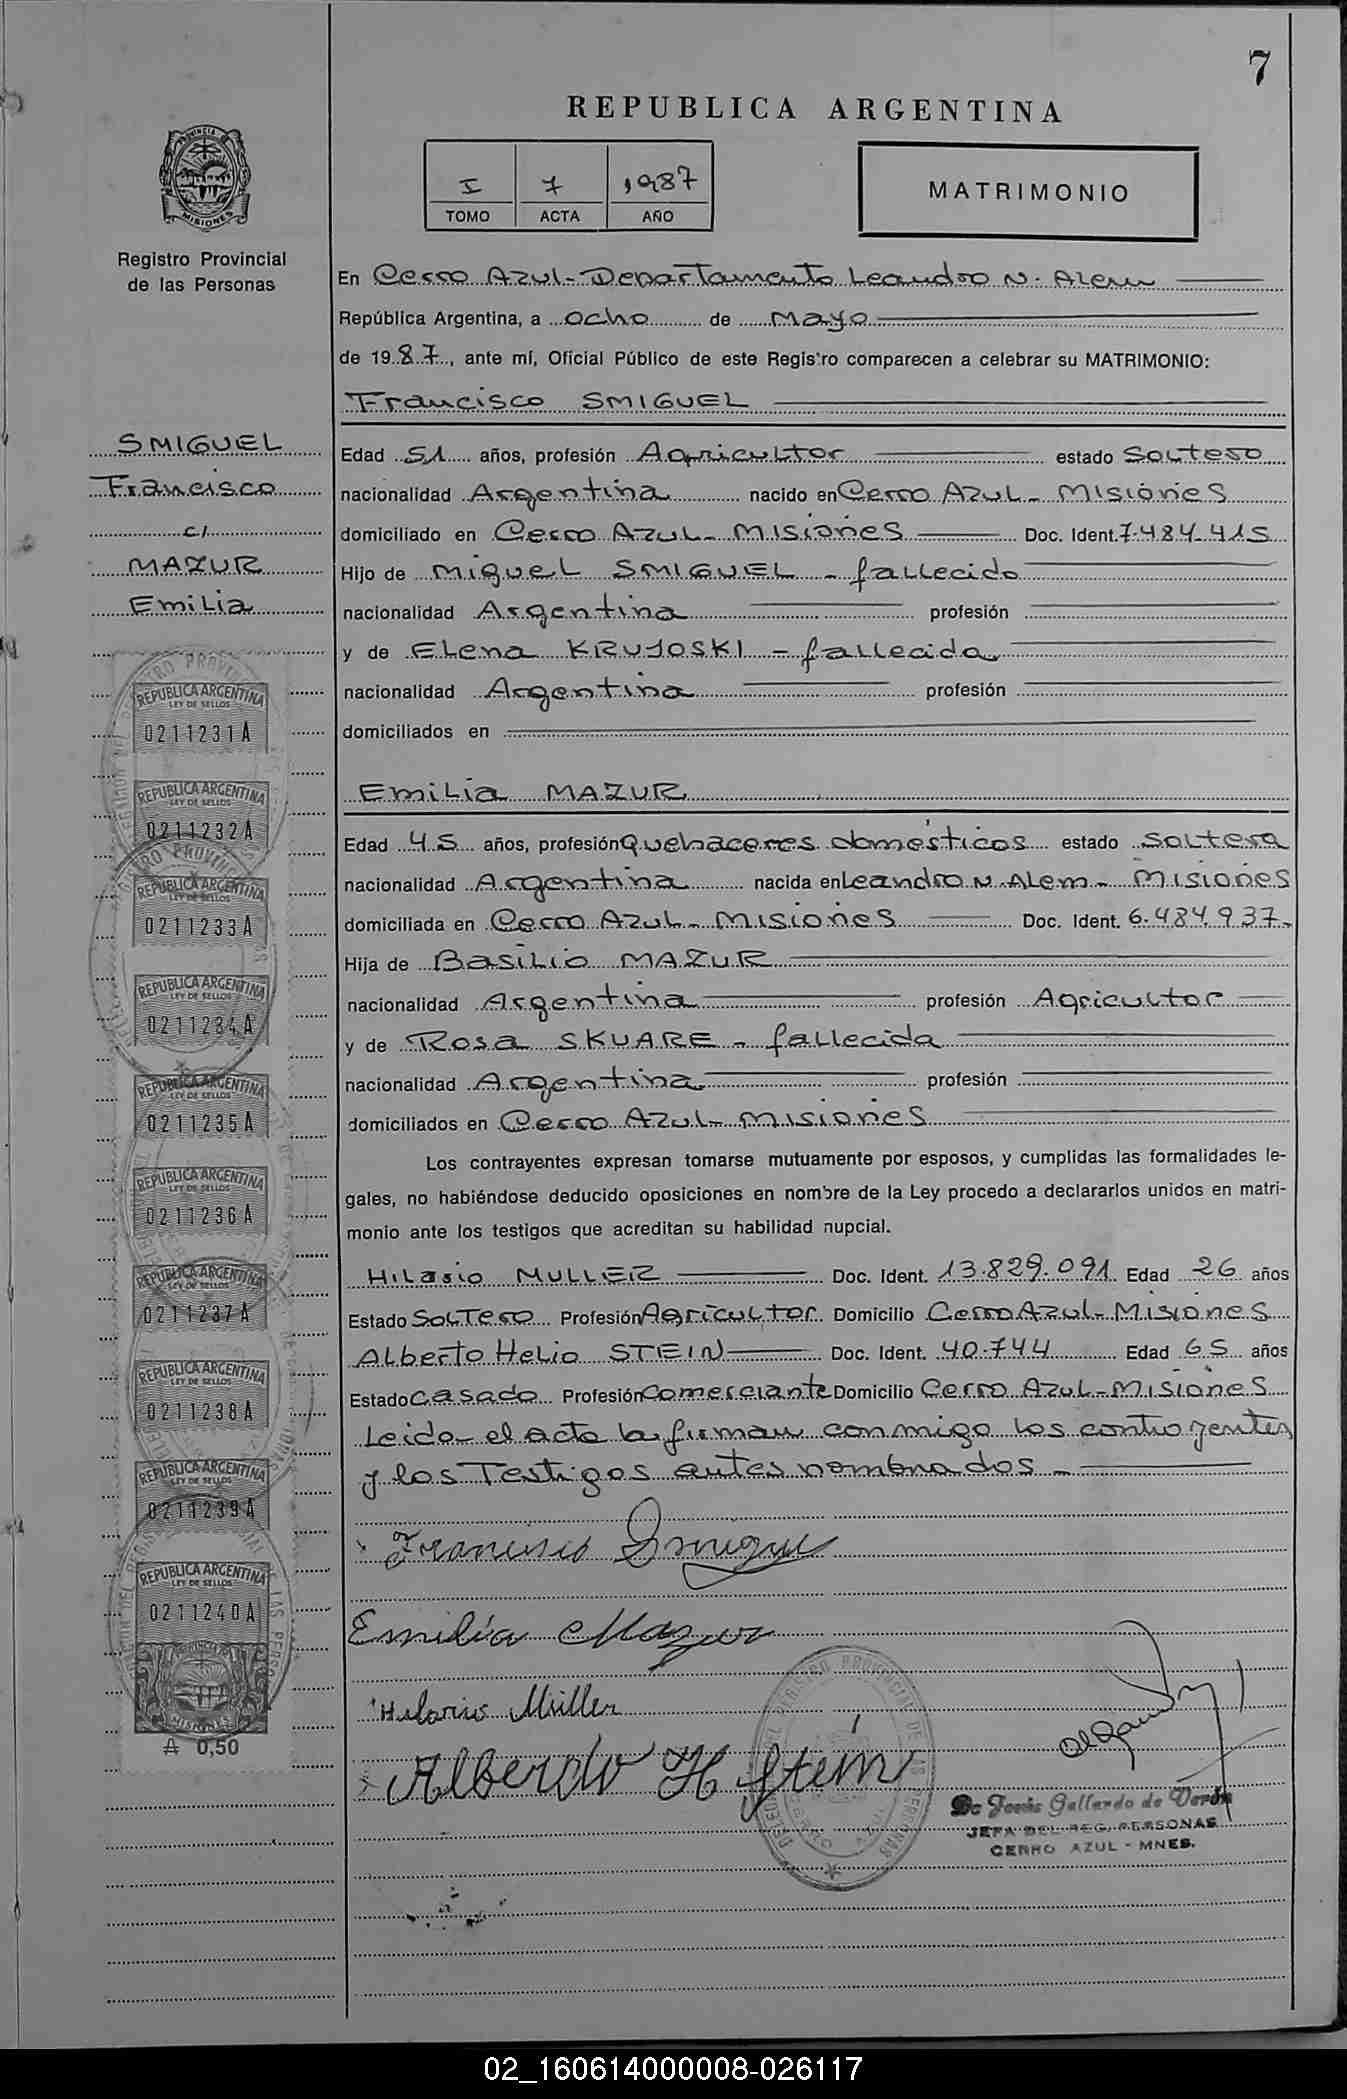 7
REPUBLICA ARGENTINA
I 7 1987
TOMO ACTA AÑO
MATRIMONIO
PROVINCIA DE
MISIONES
Registro Provincial
de las Personas
En Cerro Azul - Departamento Leandro N. Alem
República Argentina, a ocho de Mayo
de 1987, ante mí, Oficial Público de este Registro comparecen a celebrar su MATRIMONIO:
Francisco SMIGUEL
SMIGUEL
Francisco
c/
MAZUR
Emilia
Edad 51 años, profesión Agricultor estado Soltero
nacionalidad Argentina nacido en Cerro Azul - Misiones
domiciliado en Cerro Azul - Misiones Doc. Ident. 7.484.415
Hijo de Miguel SMIGUEL - fallecido
nacionalidad Argentina profesión
y de Elena KRUJOSKI - fallecida
nacionalidad Argentina profesión
domiciliados en
Emilia MAZUR
Edad 45 años, profesión Quehaceres domésticos estado Soltera
nacionalidad Argentina nacida en Leandro N. Alem - Misiones
domiciliada en Cerro Azul - Misiones Doc. Ident. 6.484.937-
Hija de Basilio MAZUR
nacionalidad Argentina profesión Agricultor
y de Rosa SKUARE - fallecida
nacionalidad Argentina profesión
domiciliados en Cerro Azul - Misiones
Los contrayentes expresan tomarse mutuamente por esposos, y cumplidas las formalidades le-
gales, no habiéndose deducido oposiciones en nombre de la Ley procedo a declararlos unidos en matri-
monio ante los testigos que acreditan su habilidad nupcial.
Hilario MULLER Doc. Ident. 13.829.091 Edad 26 años
Estado Soltero Profesión Agricultor Domicilio Cerro Azul - Misiones
Alberto Helio STEIN Doc. Ident. 40.744 Edad 65 años
Estado Casado Profesión Comerciante Domicilio Cerro Azul - Misiones
Leida el acta la firman conmigo los contrayentes
y los Testigos antes nombrados -
Francisco Smiguel
Emilia Mazur
Hilario Müller
Alberdo H Stein
de Jesús Gallardo de Verón
JEFA DEL REG. PERSONAS
CERRO AZUL - MNES.
REPUBLICA ARGENTINA
LEY DE SELLOS
0211231A
REPUBLICA ARGENTINA
LEY DE SELLOS
0211232A
REPUBLICA ARGENTINA
LEY DE SELLOS
0211233A
REPUBLICA ARGENTINA
LEY DE SELLOS
0211234A
REPUBLICA ARGENTINA
LEY DE SELLOS
0211235A
REPUBLICA ARGENTINA
LEY DE SELLOS
0211236A
REPUBLICA ARGENTINA
LEY DE SELLOS
0211237A
REPUBLICA ARGENTINA
LEY DE SELLOS
0211238A
REPUBLICA ARGENTINA
LEY DE SELLOS
0211239A
REPUBLICA ARGENTINA
LEY DE SELLOS
0211240A
MISIONES
₳ 0,50
02_160614000008-026117